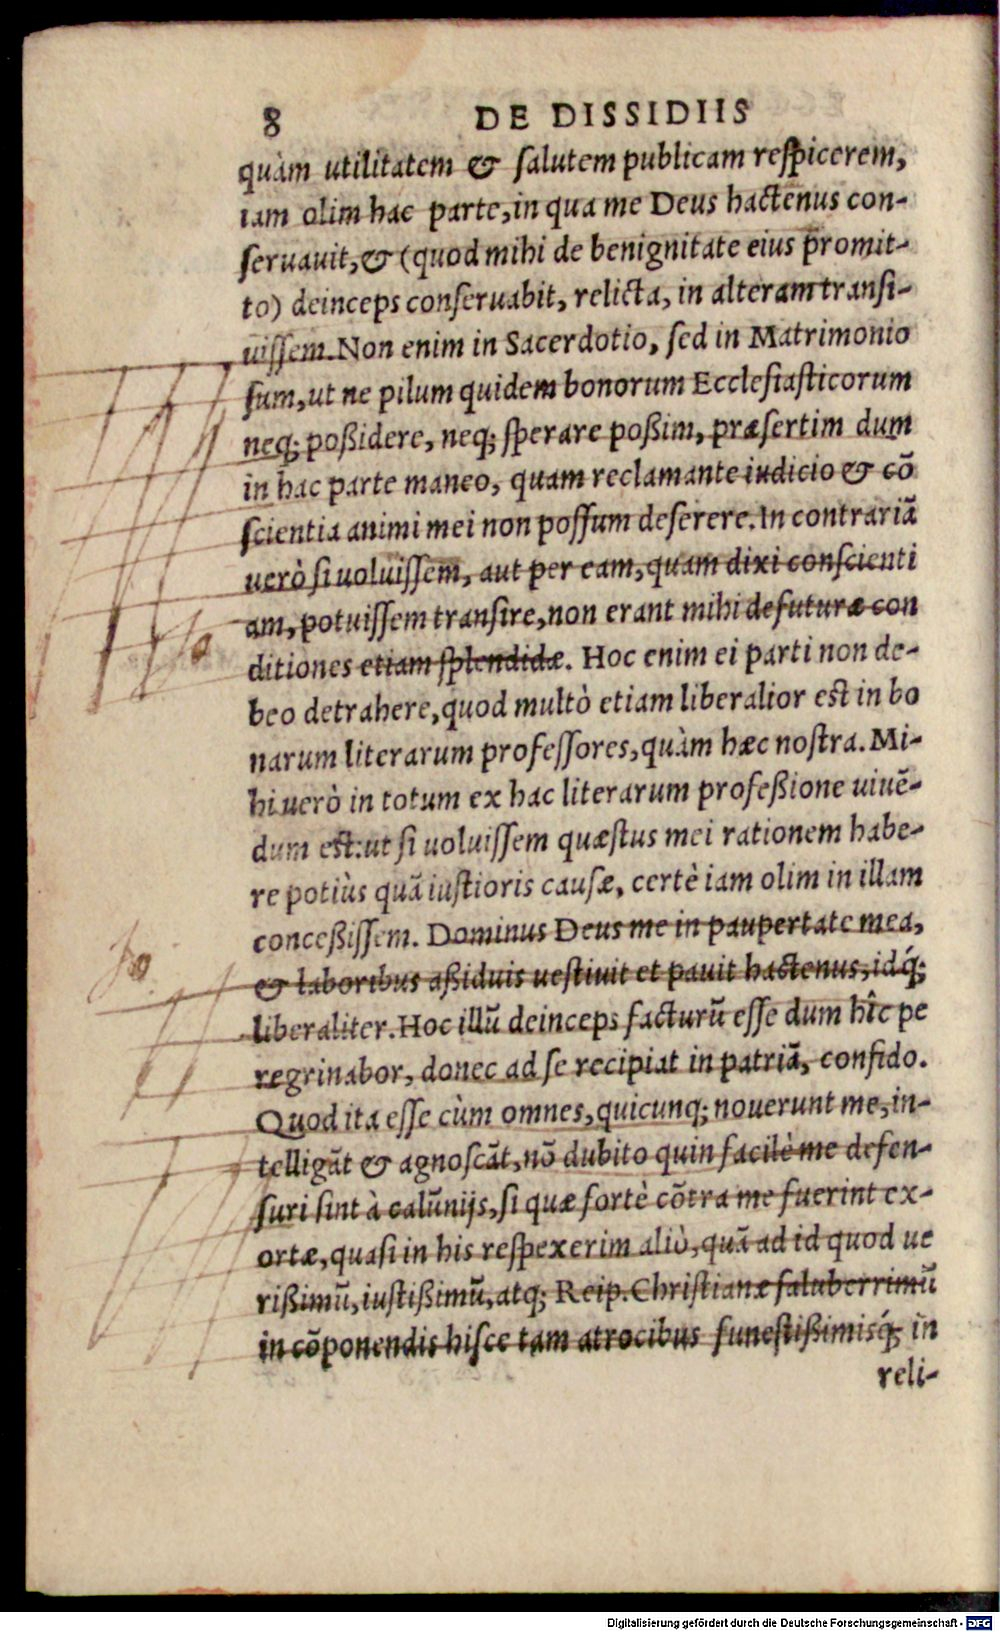 8 DE DISSIDIIS
quàm utilitatem & ſalutem publicam reſpicerem,
iam olim hac parte, in qua me Deus hactenus con-
ſeruauit, & (quod mihi de benignitate eius promit-
to) deinceps conſeruabit, relicta, in alteram tranſi-
uiſſem. Non enim in Sacerdotio, ſed in Matrimonio
ſum, ut ne pilum quidem bonorum Eccleſiaſticorum
neq; poßidere, neq; ſperare poßim, præſertim dum
in hac parte maneo, quam reclamante iudicio & cō
ſcientia animi mei non poſſum deſerere. In contrariā
uerò ſi uoluiſſem, aut per eam, quam dixi conſcienti
am, potuiſſem tranſire, non erant mihi defuturæ con
ditiones etiam ſplendidæ. Hoc enim ei parti non de-
beo detrahere, quod multò etiam liberalior eſt in bo
narum literarum profeſſores, quàm hæc noſtra. Mi-
hi uerò in totum ex hac literarum profeßione uiuē-
dum eſt: ut ſi uoluiſſem quæſtus mei rationem habe-
re potiùs quā iuſtioris cauſæ, certè iam olim in illam
conceßiſſem. Dominus Deus me in paupertate mea,
& laboribus aßiduis ueſtiuit et pauit hactenus, idq́;
liberaliter. Hoc illū deinceps facturū eſſe dum hîc pe
regrinabor, donec ad ſe recipiat in patriā, confido.
Quod ita eſſe cùm omnes, quicunq; nouerunt me, in-
telligāt & agnoſcāt, nō dubito quin facilè me defen-
ſuri ſint à calūnijs, ſi quæ fortè cōtra me fuerint ex-
ortæ, quaſi in his reſpexerim aliò, quā ad id quod ue
rißimū, iuſtißimū, atq; Reip. Chriſtianæ ſaluberrimū
in cōponendis hiſce tam atrocibus funeſtißimisq́; in
reli-
Digitalisierung gefördert durch die Deutsche Forschungsgemeinschaft - DFG